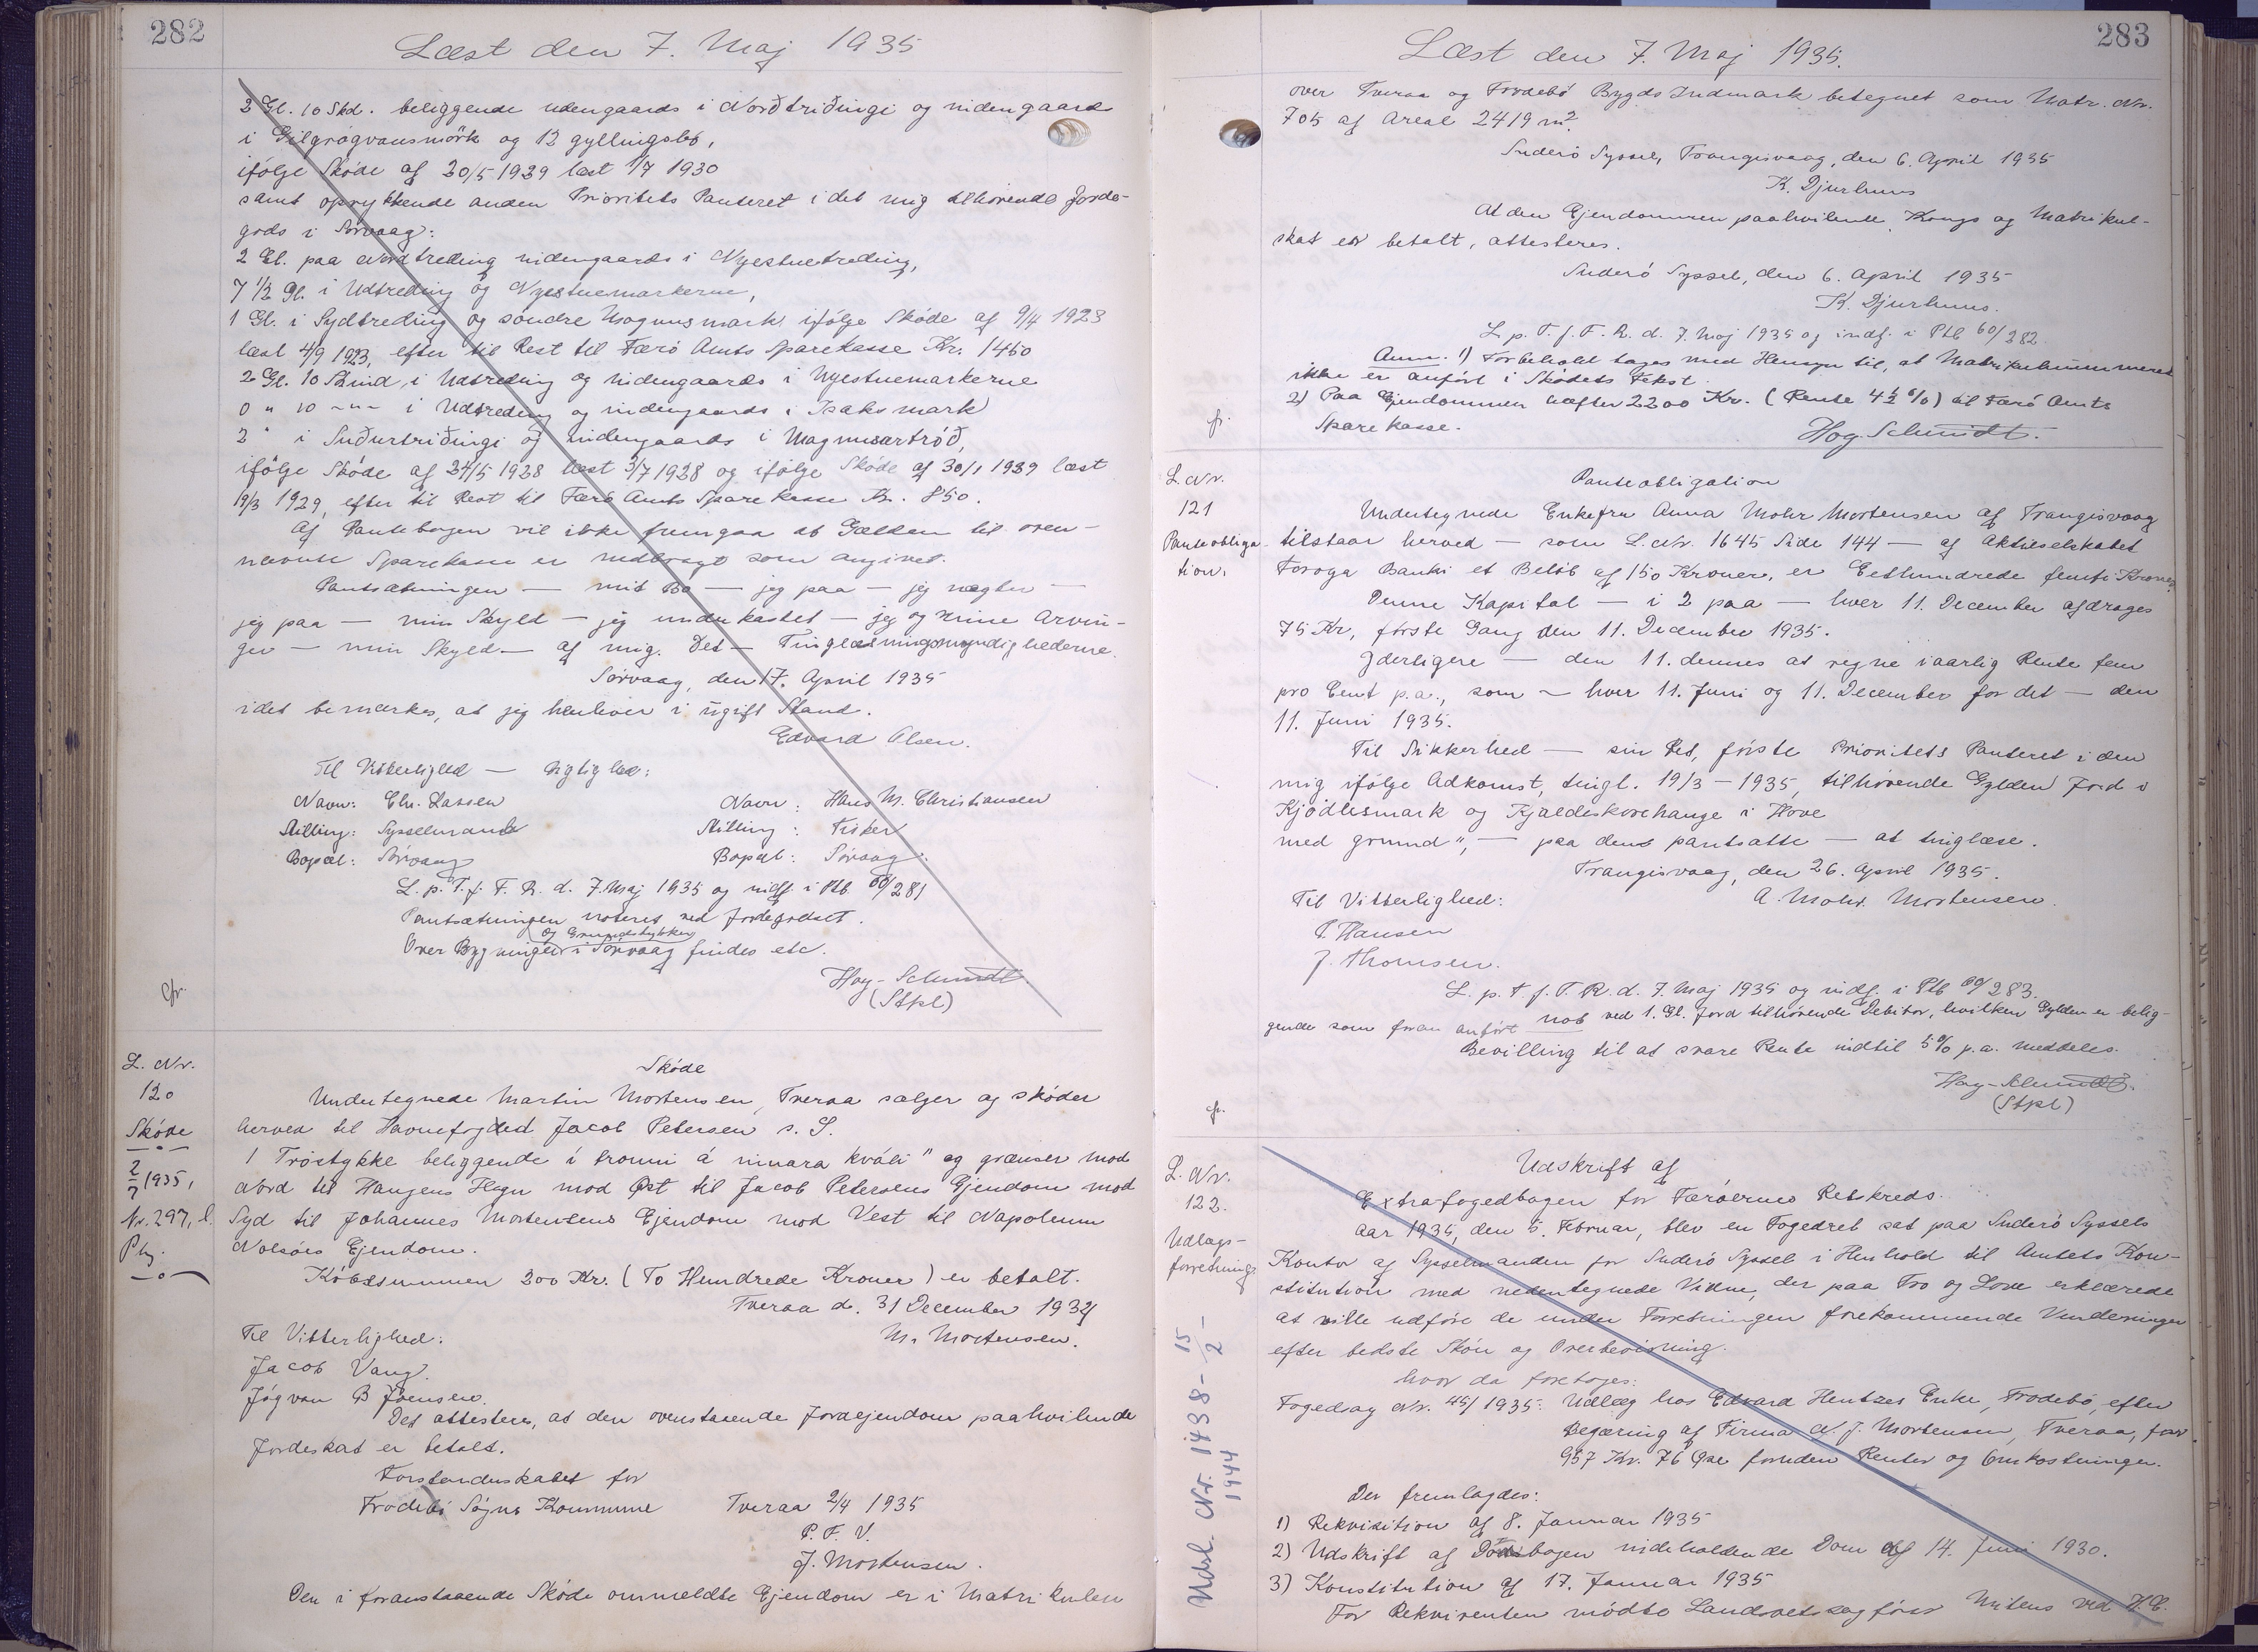 282
Læst den 7. Maj 1935
2 Gl. 10 Skd. beliggende udengaards i Norðtriðingi og indengaards
i Gilgrógvansmörk og 12 gyllingsbø,
ifølge Skøde af 20/5 1929 læst 1/7 1930
samt oprykkende anden Prioritets Panteret i det mig tilhørende Jorde-
gods i Sørvaag:
2 Gl. paa Nordtreding indengaards i Nyestuetreding,
7 1/2 Gl. i Udtreding og Nyestuemarkerne,
1 Gl. i Sydtreding og søndre Magnusmark ifølge Skøde af 9/4 1923
læst 4/9 1923, efter til Rest til Færø Amts Sparekasse Kr. 1450
2 Gl. 10 Skind, i Udtreding og indengaards i Nyestuemarkerne
0 " 10 -"- i Udtreding og indengaards i Isaksmark
2 " i Suðurtriðingi og indengaards i Magnusartrøð,
ifølge Skøde af 24/5 1928 læst 3/7 1928 og ifølge Skøde af 30/1 1929 læst
19/3 1929, efter til Rest til Færø Amts Sparekasse Kr. 850.
Af Pantebogen vil ikke fremgaa at Gælden til oven-
nævnte Sparekasse er nedbragt som angivet.
Pantsætningen — mit Bo — jeg paa — jeg vægter —
jeg paa — min Skyld — jeg underkastet — jeg og mine Arvin-
ger — min Skyld — af mig. Det — Tinglæsningsmyndighederne.
Sørvaag, den 17. April 1935
idet bemærkes, at jeg henlever i ugift Stand.
Edvard Olsen.
Til Vitterlighed — Rigtighed:
Navn: Chr. Lassen Navn: Hans M. Christiansen
Stilling: Sysselmand Stilling: Fisker
Bopæl: Sørvaag Bopæl: Sørvaag.
L. p. T. f. F. R. d. 7. Maj 1935 og indf. i Ptb. 60/281
Pantsætningen noteret ved Jordegodset.
og Grundstykker
Over Bygninger i Sørvaag findes etc.
cfr.
Hog-Schmidt
(Stpl)
L. Nr.
120
Skøde
2/7 1935,
Nr. 297, l.
Pbg.
Skøde
Undertegnede Martin Mortensen, Tveraa sælger og skøder
herved til Havnefoged Jacob Petersen s. S.
1 Trøstykke beliggende í tronni á niuara kváli" og grænser mod
Nord til Haugens Hegn mod Øst til Jacob Petersens Ejendom mod
Syd til Johannes Mortensens Ejendom mod Vest til Napoleum
Nolsøes Ejendom.
Købesummen 200 Kr. (To Hundrede Kroner) er betalt.
Tveraa d. 31 December 1934
Til Vitterlighed: M. Mortensen.
Jacob Vang.
Jógvan B Joensen.
Det attesteres, at den ovenstaaende Jordejendom paahvilende
Jordeskat er betalt.
Forstanderskabet for
Frodebø Sogns Kommune Tveraa 2/4 1935
P. F. V.
J. Mortensen.
Den i foranstaaende Skøde ommeldte Ejendom er i Matrikulen
283
Læst den 7. Maj 1935.
over Tveraa og Frodebø Bygds Indmark betegnet som Matr. Nr.
705 af Areal 2419 m².
Suderø Syssel, Trangisvaag, den 6. April 1935
K. Djurhuus
At den Ejendommen paahvilende Kongs og Matrikul-
skat er betalt, attesteres.
Suderø Syssel, den 6. April 1935
K. Djurhuus.
L. p. T. f. F. R. d. 7. Maj 1935 og indf. i Ptb 60/282.
Anm. 1) Forbehold tages med Hensyn til, at Matrikulnummeret
ikke er anført i Skødets Tekst.
2) Paa Ejendommen hæfter 2200 Kr. (Rente 4½ %) til Færø Amts
Sparekasse.
cfr.
Hog-Schmidt.
L. Nr.
121
Panteobliga-
tion.
Panteobligation
Undertegnede Enkefru Anna Mohr Mortensen af Trangisvaag
tilstaar herved — som L. Nr. 1645 Side 144 — af Aktieselskabet
Føroya Banki et Beløb af 150 Kroner, er Eethundrede femti Kroner.
Denne Kapital — i 2 paa — hver 11. December afdrages
75 Kr, første Gang den 11. December 1935.
Yderligere — den 11. dennes at regne i aarlig Rente fem
pro Cent p.a., som — hver 11. Juni og 11. December for det — den
11. Juni 1935.
Til Sikkerhed — sin Ret, første Prioritets Panteret i den
mig ifølge Adkomst, tingl. 19/3 - 1935, tilhørende Gylden Jord i
Kjødlesmark og Kjaldeskorehauge i Hove
med grund", — paa dens pantsatte — at tinglæse.
Trangisvaag, den 26. April 1935.
Til Vitterlighed: A. Mohr Mortensen.
P. Hansen
J. Thomsen.
L. p. T. f. F. R. d. 7. Maj 1935 og indf. i Ptb 60/283.
not ved 1. Gl. Jord tilhørende Debitor, hvilken Gylden er belig-
gende som foran anført
Bevilling til at svare Rente indtil 5% p.a. meddeles.
Hog-Schmidt.
(Stpl)
cfr.
L. Nr.
122.
Udlægs-
forretning
Udsl. Nr. 1438 - 15/2 - 1944
Udskrift af
Extrafogedbogen for Færøernes Retskreds.
Aar 1935, den 5. Februar, blev en Fogedret sat paa Suderø Syssels
Kontor af Sysselmanden for Suderø Syssel i Henhold til Amtets Kon-
stitution med nedentegnede Vidne, der paa Tro og Love erklærede
at ville udføre de under Forretningen forekommende Vurderinger
efter bedste Skøn og Overbevisning.
hvor da foretoges:
Fogedsag Nr. 45/1935: Udlæg hos Edvard Hentzes Enke, Frodebø, efter
Begæring af Firma N. J. Mortensen, Tveraa, for
957 Kr. 76 Øre foruden Renter og Omkostninger.
Der fremlagdes:
1) Rekvisition af 8. Januar 1935
2) Udskrift af Dombogen indeholdende Dom af 14. Juni 1930.
3) Konstitution af 17. Januar 1935
For Rekvirenten mødte Landsretssagfører Mitens ved H. C.